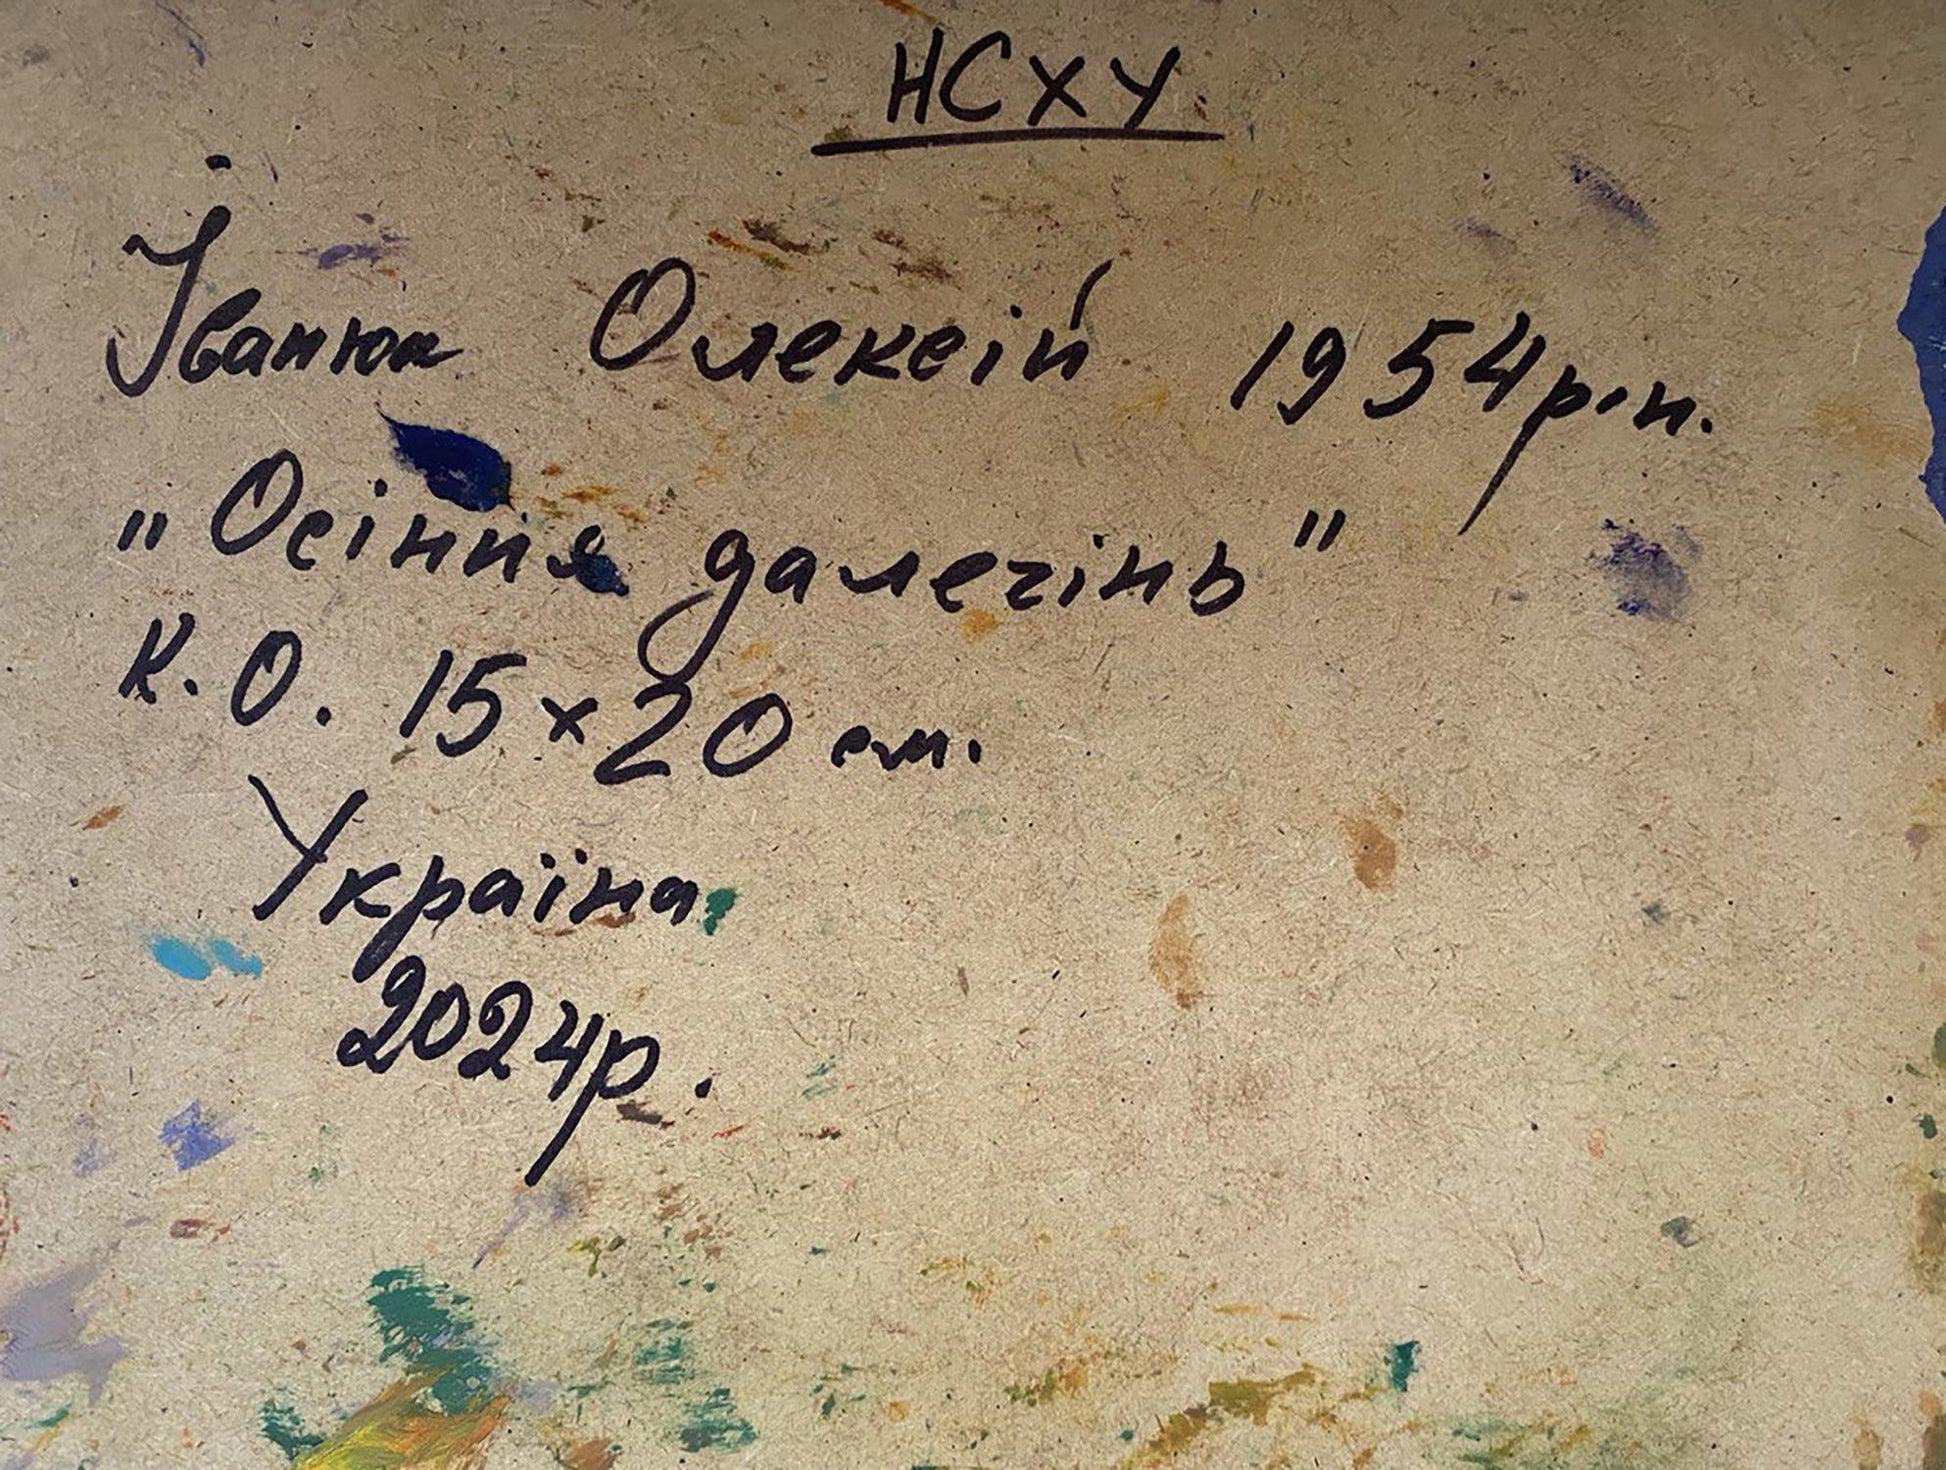 НСХУ
Іванюк Олексій 1954р.н.
"Осіння далечінь"
К.О. 15×20 см.
Україна
2024р.